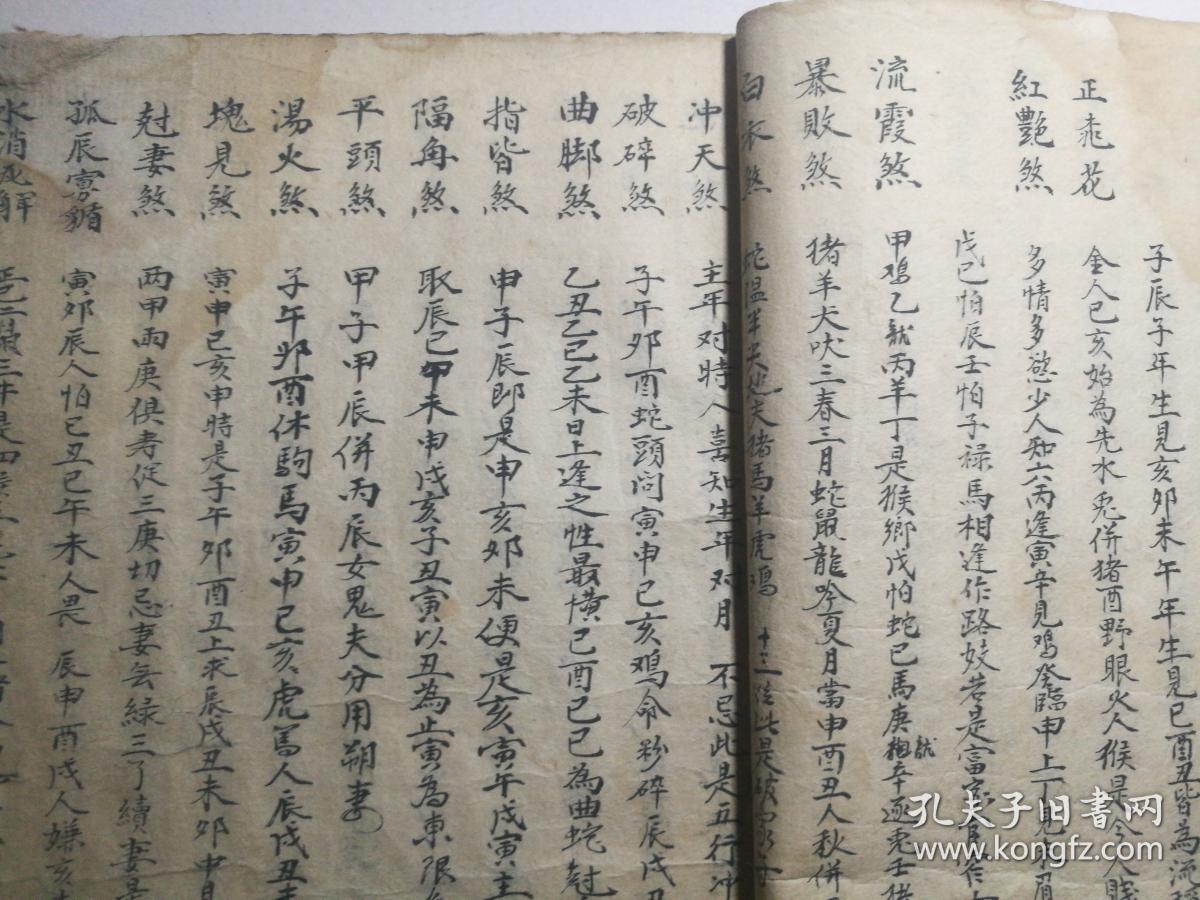 子辰子年生見亥卯未午年生見巳酉丑皆為流
正桃花 金人巳亥始為先水兎併猪酉野眼火人猴是今人賤
紅艷煞 多情多慾少人知六丙逢寅辛見鳮癸臨申上丁見未眉
戊己怕辰壬怕子禄馬相逢作路妓若是富家
流霞煞 甲鳮乙龍丙羊丁是猴鄉戊怕蛇己馬庚辛逐兎壬猪
暴敗煞 猪羊犬吠三春三月蛇鼠龍吟夏月當申酉丑人秋併
白衣煞 猪馬羊虎鳮 是破家
冲天煞 主年对時人喜知生年对月 不忌此是五行冲
破碎煞 子午卯酉蛇頭问寅申巳亥鳮命粉碎辰戌丑
曲脚煞 乙丑乙巳乙未日上逢之性最横己酉己巳為曲蛇
指皆煞 申子辰即是申亥卯未便是亥寅午戌寅主
隔角煞 取辰巳未申戌亥子丑寅以丑為止寅為東限
平頭煞 甲子甲辰併丙辰女鬼夫分用朔妻
湯火煞 子午卯酉休駒馬寅申巳亥虎寓人辰戌丑
塊見煞 寅申巳亥申時是子午卯酉丑上求辰戌丑未卯中
尅妻煞 两甲两庚俱寿促三庚切忌妻无緑三丁續妻是
孤辰寡 寅卯辰人怕巳丑巳午未人畏 辰申酉戌人嫌亥
水消
孔夫子旧书网
www.kongfz.com